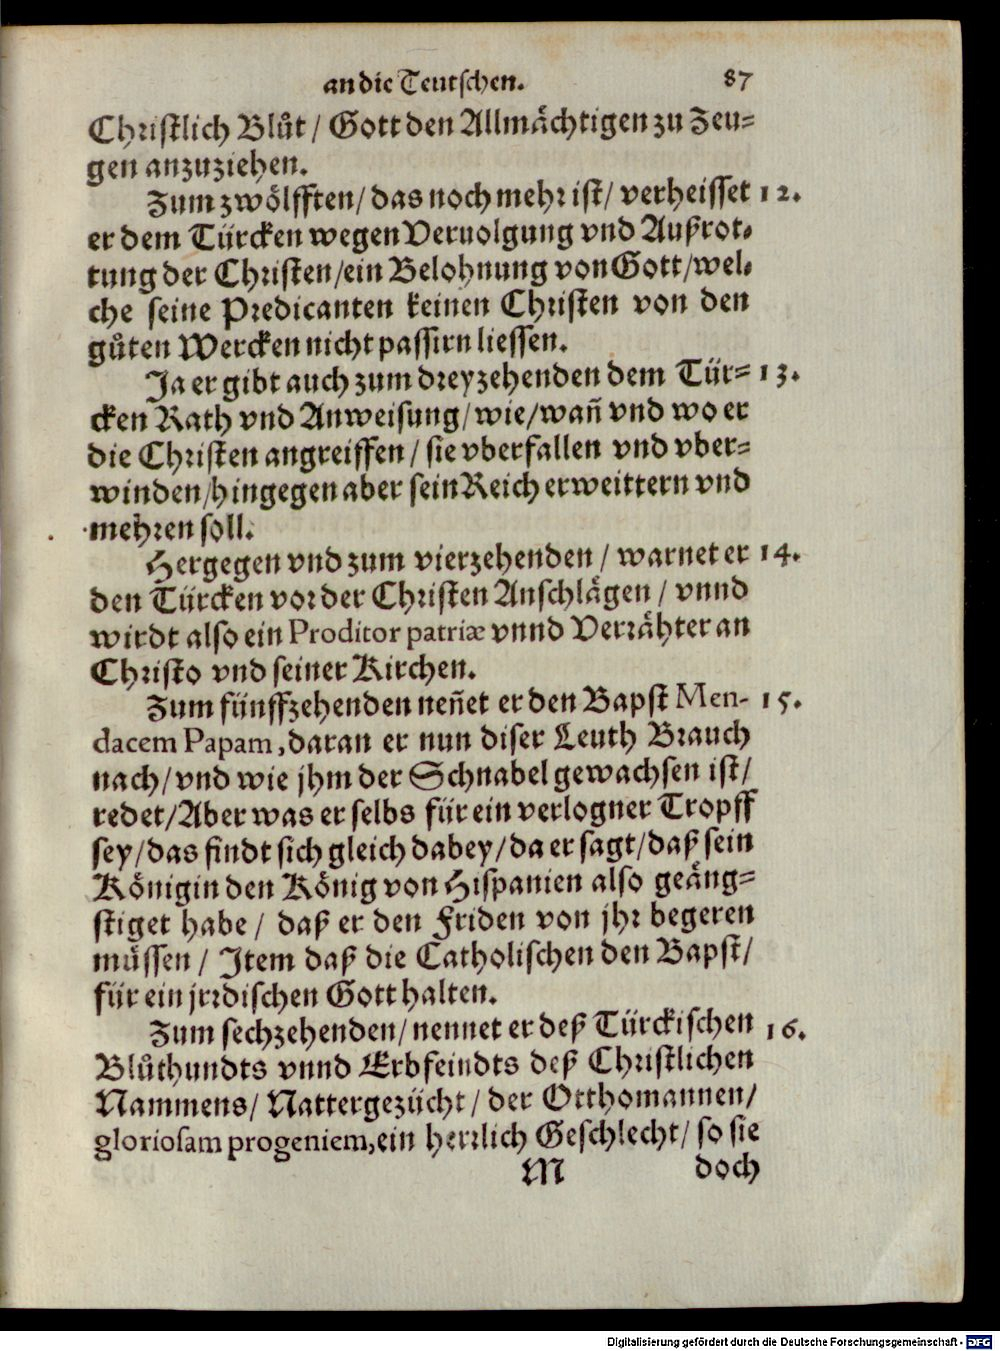 an die Teutschen. 87
Christlich Blůt / Gott den Allmächtigen zu Zeu=
gen anzuziehen.
Zum zwölfften / das noch mehr ist / verheisset 12.
er dem Türcken wegen Veruolgung vnd Außrot=
tung der Christen / ein Belohnung von Gott / wel=
che seine Predicanten keinen Christen von den
gůten Wercken nicht passirn liessen.
Ja er gibt auch zum dreyzehenden dem Tür= 13.
cken Rath vnd Anweisung / wie / wañ vnd wo er
die Christen angreiffen / sie vberfallen vnd vber=
winden / hingegen aber sein Reich erweittern vnd
mehren soll.
Hergegen vnd zum vierzehenden / warnet er 14.
den Türcken vor der Christen Anschlägen / vnnd
wirdt also ein Proditor patriæ vnnd Verrähter an
Christo vnd seiner Kirchen.
Zum fünffzehenden neñet er den Bapst Men- 15.
dacem Papam, daran er nun diser Leuth Brauch
nach / vnd wie jhm der Schnabel gewachsen ist /
redet / Aber was er selbs für ein verlogner Tropff
sey / das findt sich gleich dabey / da er sagt / daß sein
Königin den König von Hispanien also geäng=
stiget habe / daß er den Friden von jhr begeren
müssen / Item daß die Catholischen den Bapst /
für ein jrrdischen Gott halten.
Zum sechzehenden / nennet er deß Türckischen 16.
Blůthundts vnnd Erbfeindts deß Christlichen
Nammens / Nattergezücht / der Otthomannen /
gloriosam progeniem, ein herrlich Geschlecht / so sie
M doch
Digitalisierung gefördert durch die Deutsche Forschungsgemeinschaft - DFG